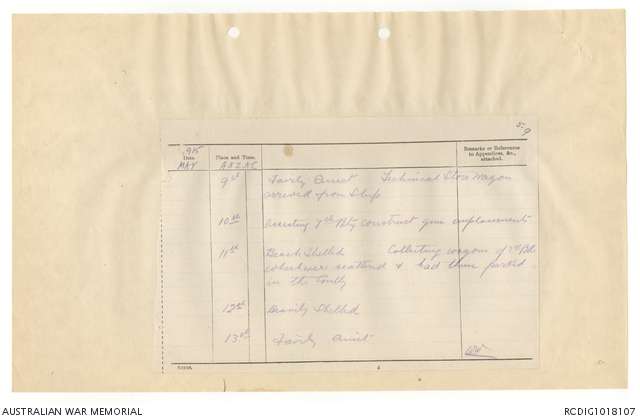 5-9
1915
Date. Place and Time. Remarks or Reference to Appendices, &c., attached.
MAY ANZAC
9th Fairly Quiet Technical Store Wagon
arrived from Ship
10th Assisting 7th Bty construct gun emplacements
11th Beach Shelled Collecting wagons of
which were scattered & had them parked
in the Gully
12th Heavily Shelled
13th Fairly Quiet
AUSTRALIAN WAR MEMORIAL RCDIG1018107